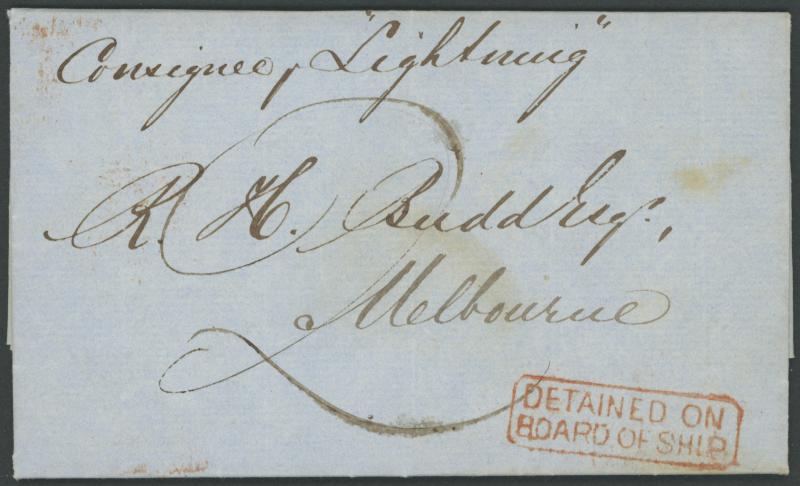 Consignee p "Lightning"
R. H. Budd Esqr.,
Melbourne
2
DETAINED ON
BOARD OF SHIP